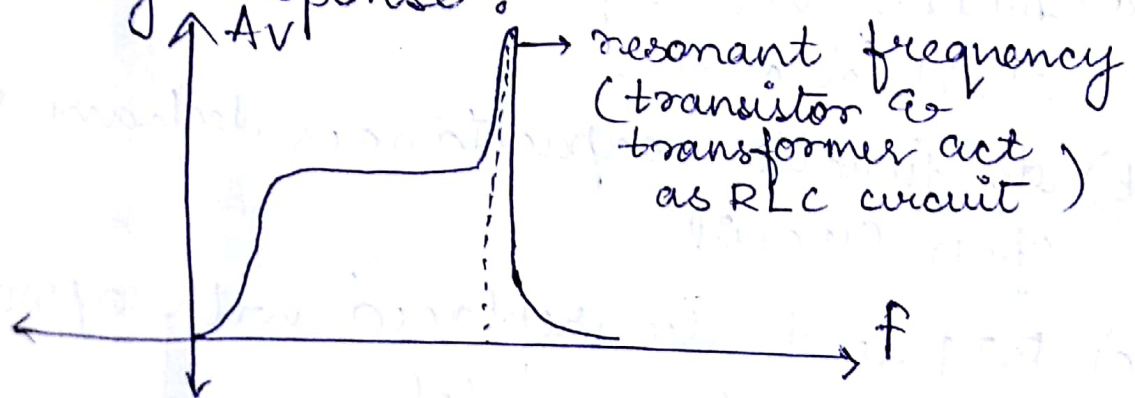 response :
Av
resonant frequency
(transistor &
transformer act
as RLC circuit)
f